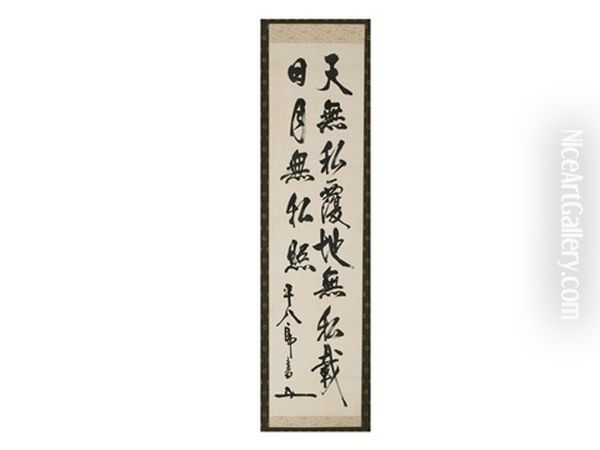 天無私覆地無私載
日月無私照
平八郎書
NiceArtGallery.com